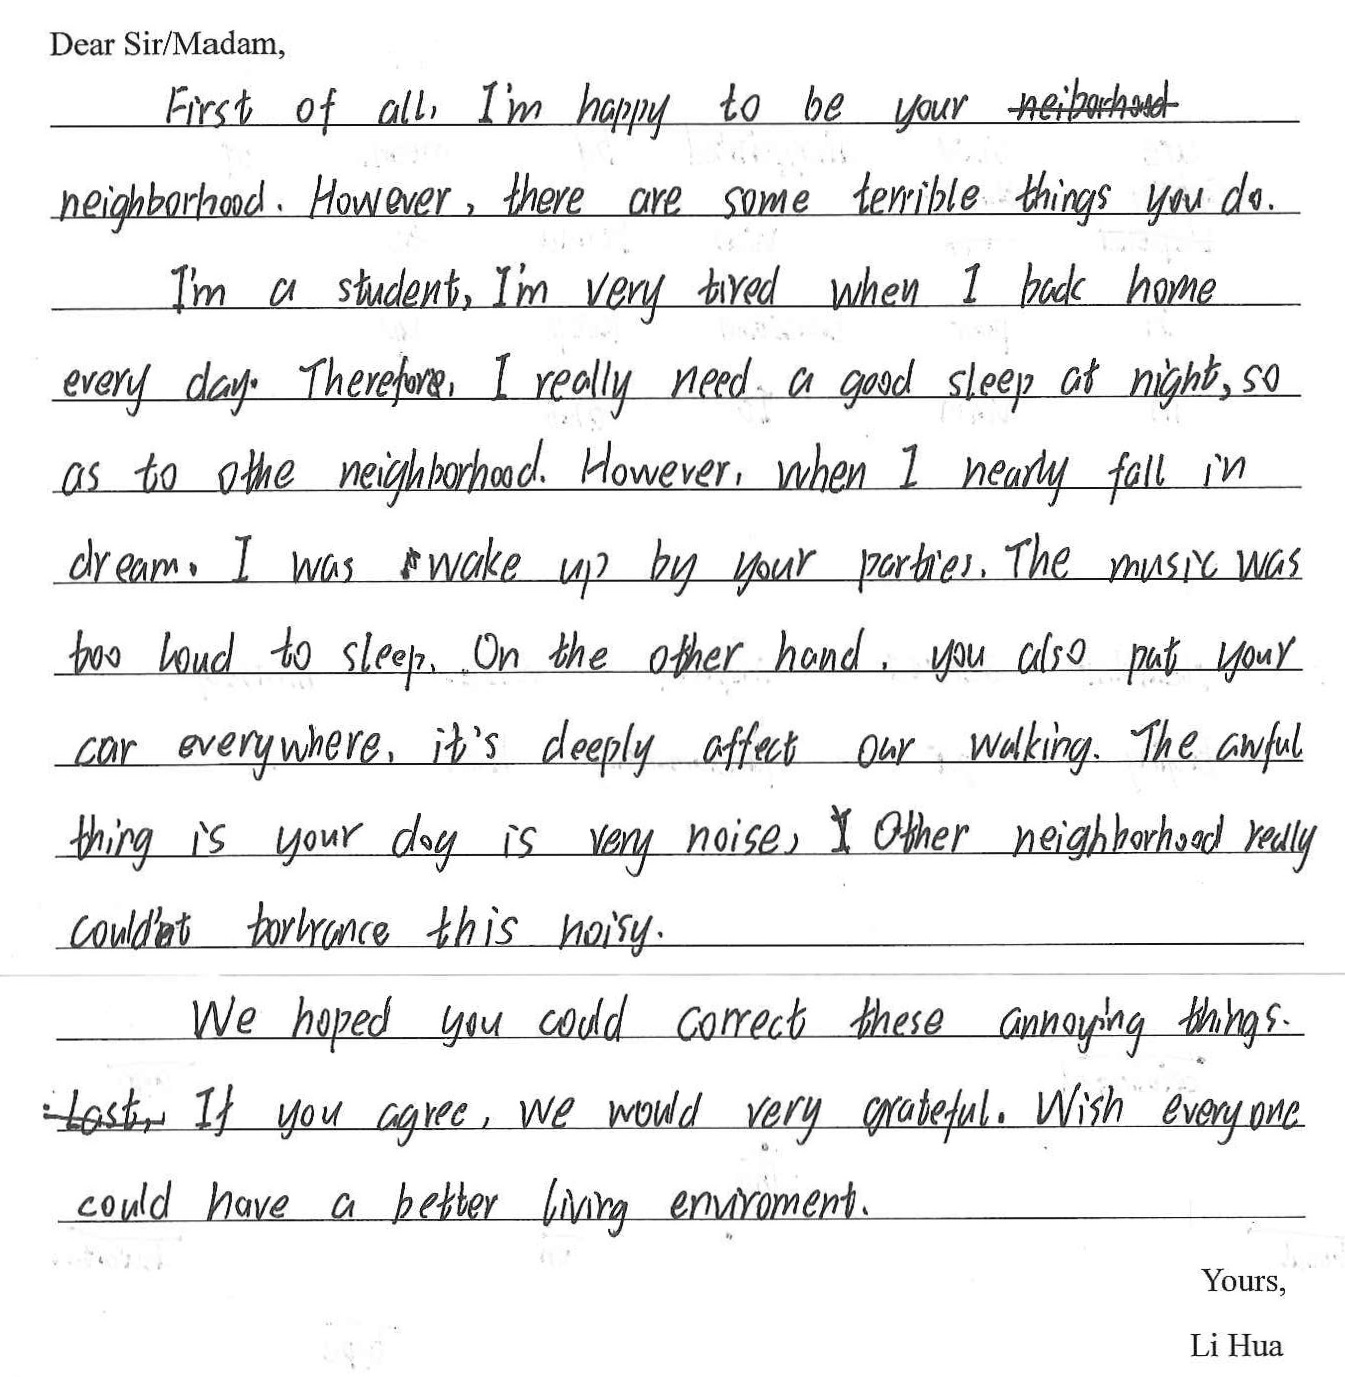 Dear Sir/Madam,
First of all, I'm happy to be your neiborhood
neighborhood. However, there are some terrible things you do.
I'm a student, I'm very tired when I back home
every day. Therefore, I really need a good sleep at night, so
as to othe neighborhood. However, when I nearly fall in
dream. I was wake up by your parties. The music was
too loud to sleep. On the other hand, you also put your
car everywhere, it's deeply affect our walking. The awful
thing is your dog is very noise, Other neighborhood really
could'nt this noisy.
We hoped you could correct these annoying things.
Last, If you agree, we would very grateful. Wish everyone
could have a better living enviroment.
Yours,
Li Hua